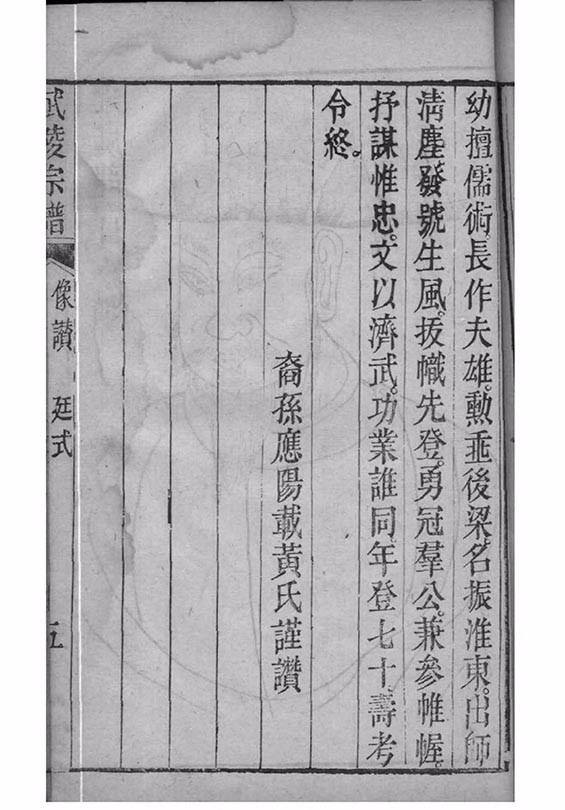 幼擅儒術。長作夫雄。勲垂後梁。名振淮東。出師
清塵。發號生風。拔幟先登。勇冠羣公。兼參帷幄。
抒謀惟忠。文以濟武。功業誰同。年登七十。壽考
令終。
裔孫應陽載黃氏謹讚
武陵宗譜
像讃
廷式
五